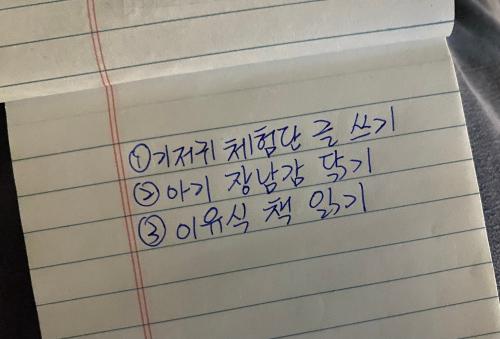 ① 기저귀 체험단 글 쓰기
② 아기 장남감 닦기
③ 이유식 책 읽기